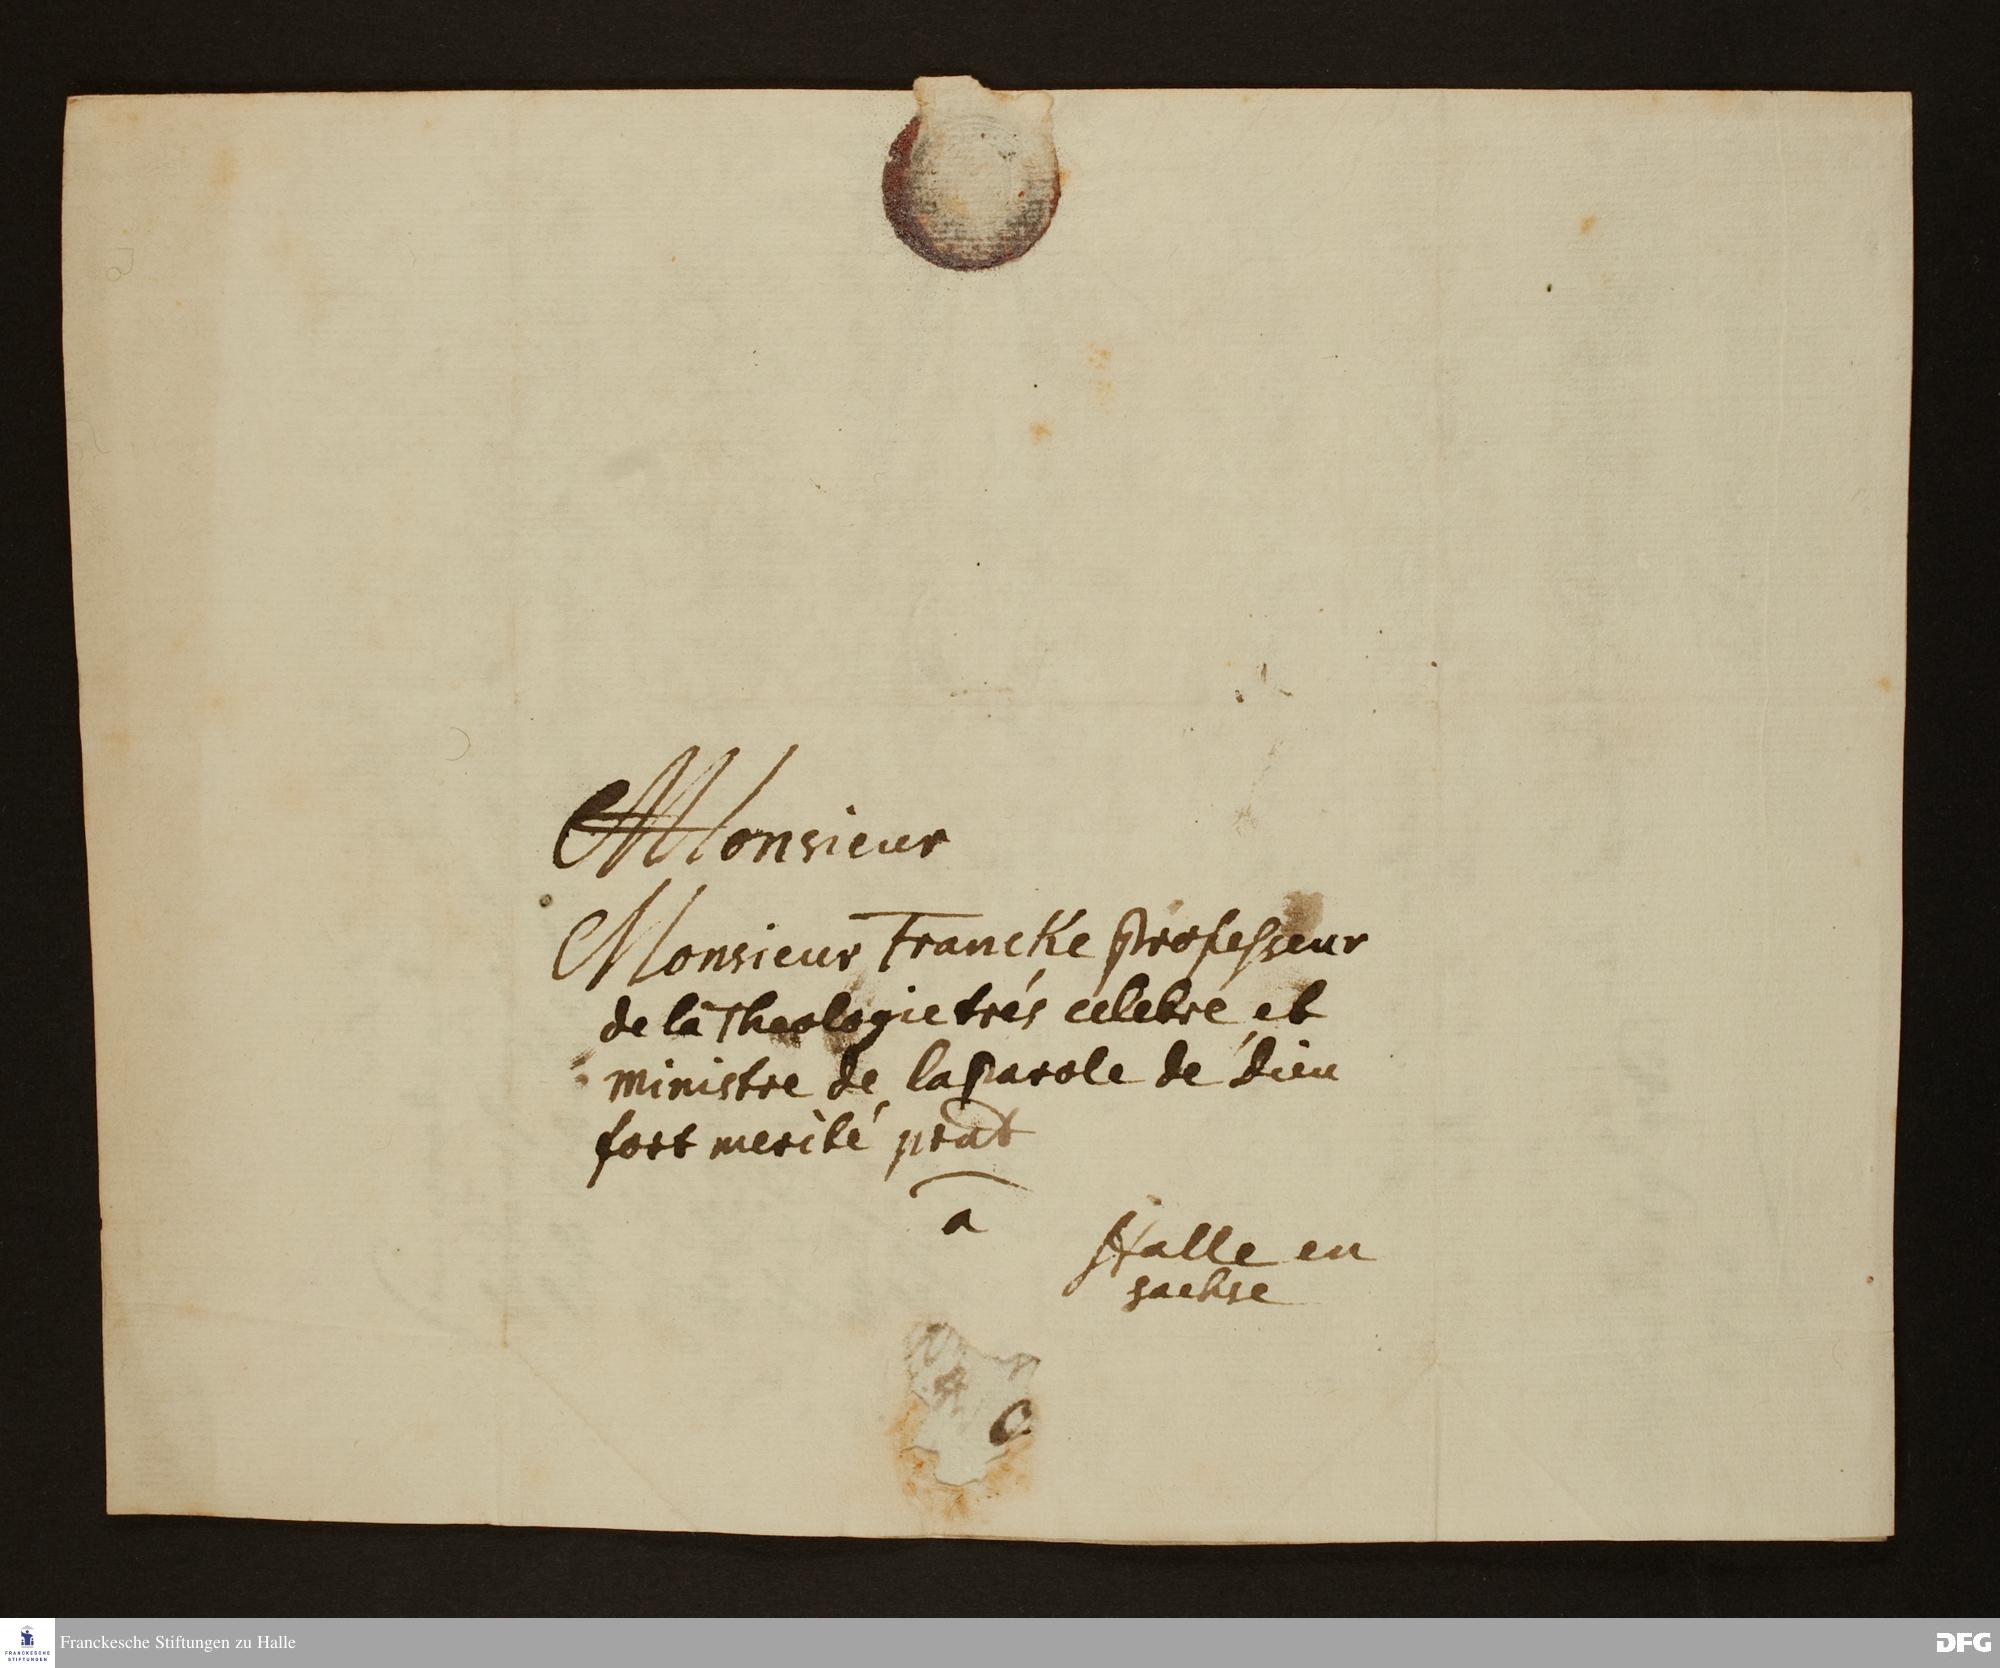 Monsieur
Monsieur Francke professeur
de la Theologie trés celebre et
ministre de la parole de Dieu
fort merité
a
Halle en
sachse
Franckesche Stiftungen zu Halle
FRANCKESCHE
STIFTUNGEN
DFG